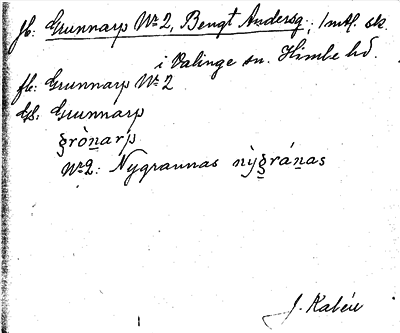 fb: Grunnarp No 2, Bengt Andersg.; 1 mtl. sk.
i Valinge sn. Himle hd.
fb: Grunnarp No 2
Gs. Grunnarp
g̱ròṉarp
No 2: Nygrannas nỳg̱ráṉas
J. Kalén